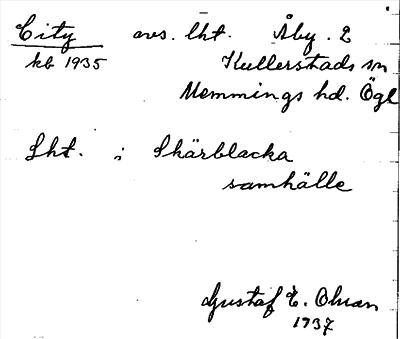 City avs. lht. Åby. 2
kb 1935 Kullerstads sn
Memmings hd. Ögl
Lht. i Skärblacka
samhälle
Gustaf E. Olsson
1937